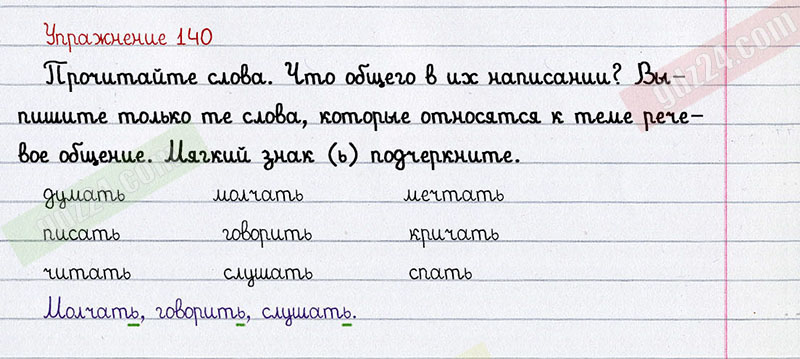 Упражнение 140
Прочитайте слова. Что общего в их написании? Вы-
пишите только те слова, которые относятся к теме рече-
вое общение. Мягкий знак (ь) подчеркните.
думать молчать мечтать
писать говорить кричать
читать слушать спать
Молчать, говорить, слушать.
ghz24.com
ghz24.com